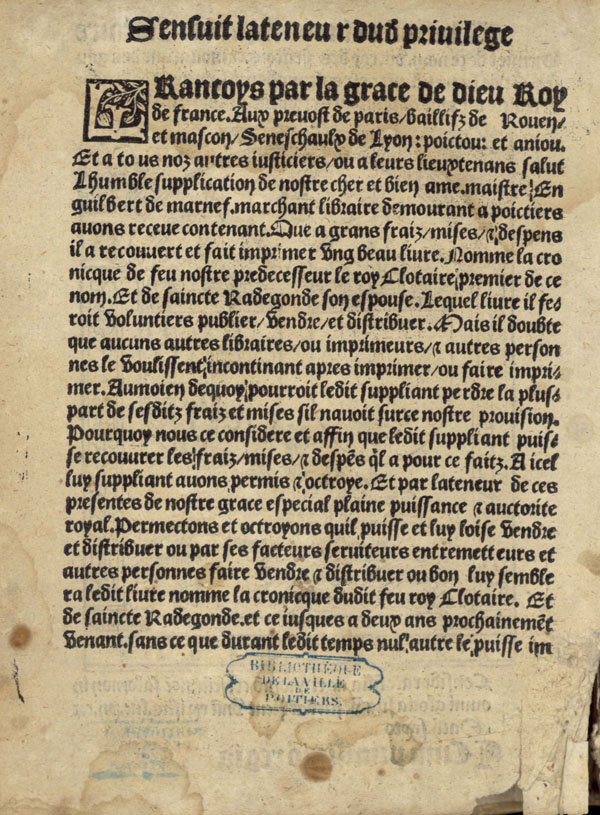 Sensuit la teneur dud privilege
FRancoys par la grace de dieu Roy
de france. Aux prevost de paris/ baillifz de Rouen/
et mascon/ Seneschaulx de Lyon: poictou: et aniou.
Et a to us noz autres iusticiers/ ou a leurs lieuxtenans salut
Lhumble supplication de nostre cher et bien ame. maistre En
guilbert de marnef. marchant libraire demourant a poictiers
avons receue contenant. Que a grans fraiz/ mises/ ⁊ despens
il a recouvert et fait imprimer vng beau livre. Nomme la cro
nicque de feu nostre predecesseur le roy Clotaire premier de ce
nom. Et de saincte Radegonde son espouse. Lequel livre il fe⸗
roit voluntiers publier/ vendre/ et distribuer. Mais il doubte
que aucuns autres libraires/ ou imprimeurs/ ⁊ autres person
nes le voulissent incontinant apres imprimer/ ou faire impri⸗
mer. Au moien dequoy pourroit ledit suppliant perdre la plus⸗
part de sesditz fraiz et mises sil nauoit sur ce nostre provision.
Pourquoy nous ce considere et affin que ledit suppliant puis⸗
se recouvrer les fraiz/ mises/ ⁊ despēs ql a pour ce faitz. A icel
luy suppliant avons permis ⁊ octroye. Et par la teneur de ces
presentes de nostre grace especial plaine puissance ⁊ auctorite
royal. Permectons et octroyons quil puisse et luy loise vendre
et distribuer ou par ses facteurs serviteurs entremetteurs et
autres personnes faire vendre ⁊ distribuer ou bon luy semble
ra ledit livre nomme la cronicque dudit feu roy Clotaire. Et
de saincte Radegonde. et ce iusques a deux ans prochainemēt
venant. sans ce que durant ledit temps nul autre le puisse im
BIBLIOTHÈQUE
DE LA VILLE
DE
POITIERS.